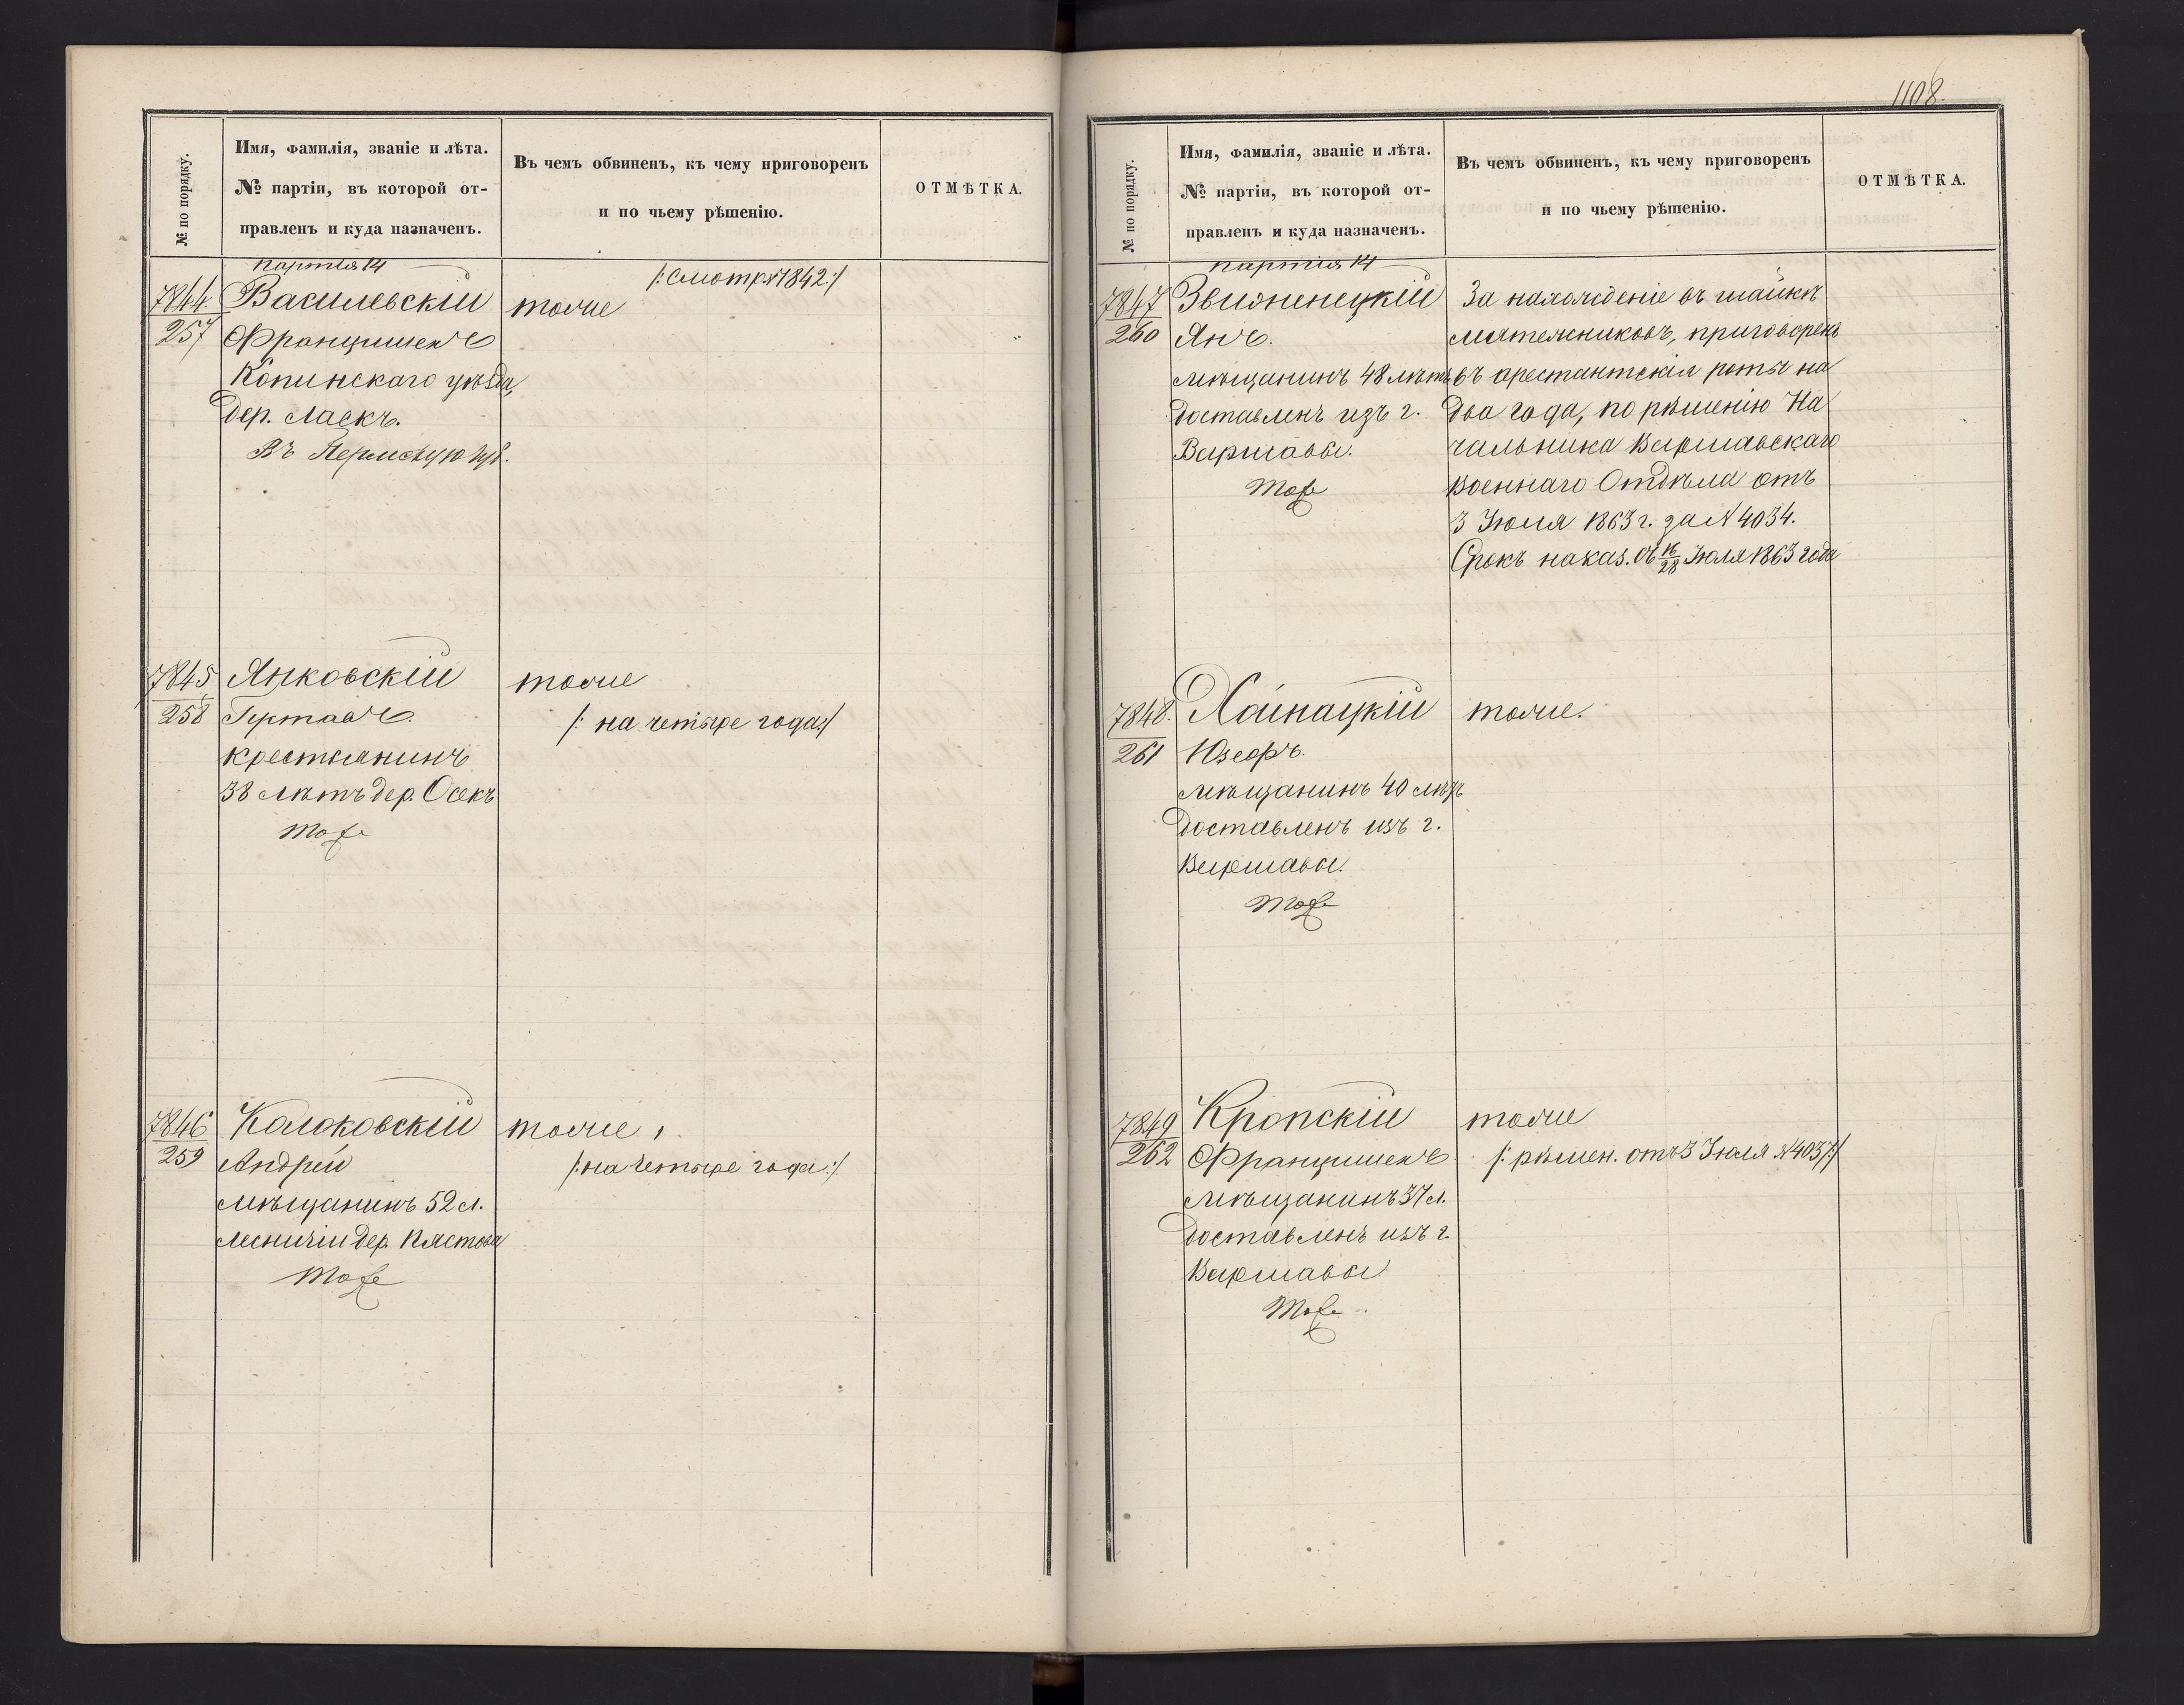 № по порядку.
Имя, фамилія, званіе и лѣта.
№ партіи, въ которой от-
правленъ и куда назначенъ.
Въ чемъ обвиненъ, къ чему приговоренъ
и по чьему рѣшенію.
ОТМѢТКА.
партія 14
7844.
257
Василевскій
Францишекъ
Конинскаго уѣзда,
дер. Ласкъ.
Въ Пермскую губ.
/:смотр. №7842:/
тоже
7845
258
Янковскій
Густавъ.
крестьянинъ
38 лѣтъ дер. Осекъ
Тоже
тоже
/: на четыре года:/
7846
259
Андрей
мѣщанинъ 52 л.
лесничій дер.
Тоже
тоже,
/:на четыре года:/
1108.
№ по порядку.
Имя, фамилія, званіе и лѣта.
№ партіи, въ которой от-
правленъ и куда назначенъ.
Въ чемъ обвиненъ, къ чему приговоренъ
и по чьему рѣшенію.
ОТМѢТКА.
партія 14
7847
260
Янъ.
мѣщанинъ 48 лѣтъ
доставленъ изъ г.
Варшавы.
Тоже
За нахожденіе въ шайкѣ
мятежниковъ, приговоренъ
въ арестантскія роты на
два года, по рѣшенію На
чальника Варшавскаго
Военнаго Отдѣла отъ
3 Іюля 1863 г. за № 4034.
Срокъ наказ. съ 16/28 Іюля 1863 года
7848.
261
Хойнацкій
Юзефъ.
мѣщанинъ 40 лѣтъ
доставленъ изъ г.
Варшавы.
Тоже
тоже.
7849
262
Кропскій
Францишекъ
мѣщанинъ 37 л.
доставленъ изъ г.
Варшавы
Тоже
тоже
/: рѣшен. отъ 3 Іюля №4037:/